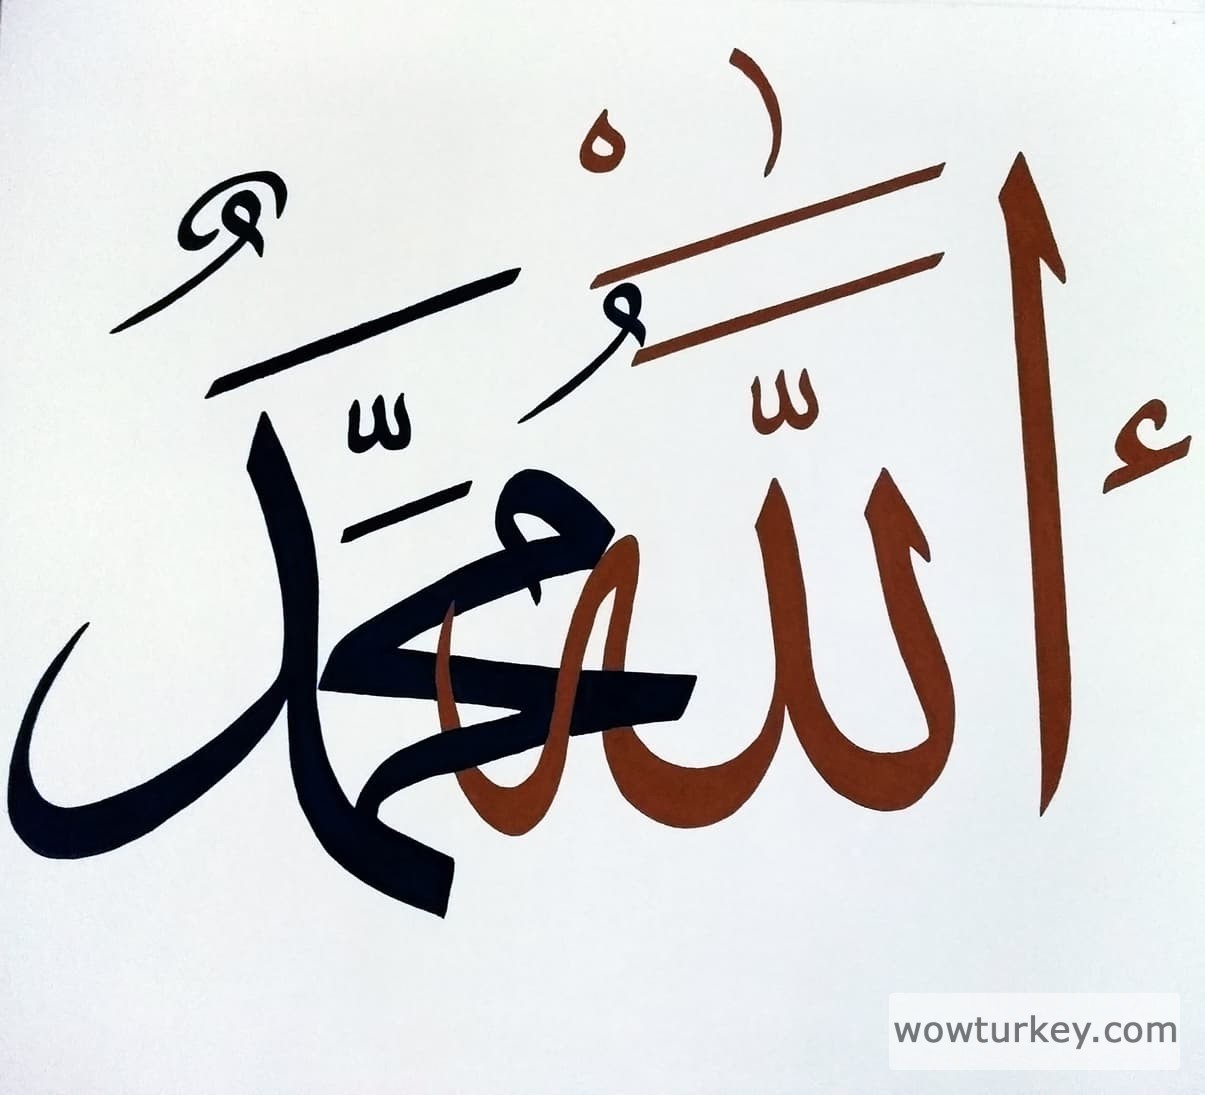 أللّٰه مُحَمَّدٌ
wowturkey.com